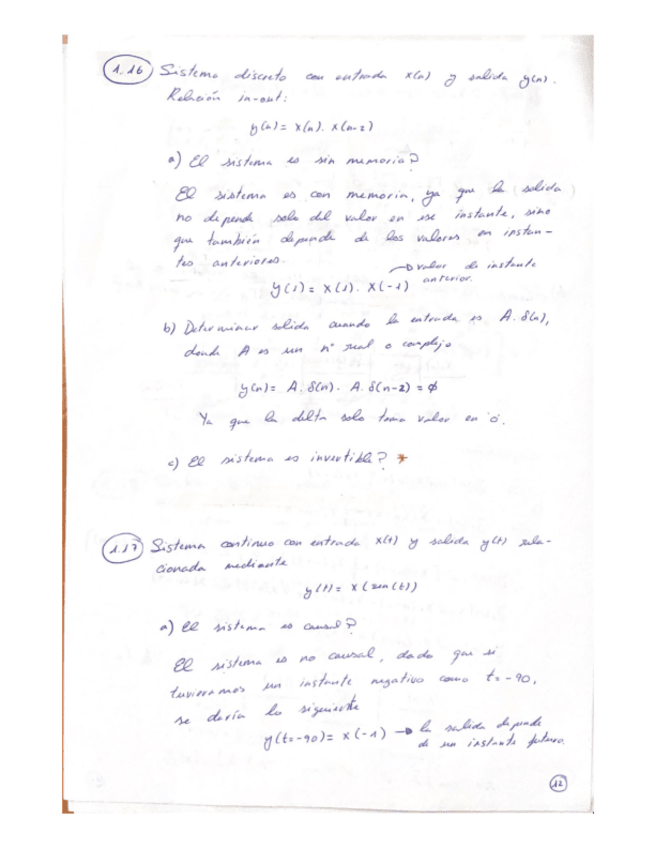 1.16 Sistema discreto con entrada x(n) y salida y(n).
Relación in-out:
y(n) = x(n). x(n-2)
a) El sistema es sin memoria?
El sistema es con memoria, ya que la salida
no depende solo del valor en ese instante, sino
que también depende de los valores en instan-
tes anteriores.
→ valor de instante
anterior.
y(1) = x(1). x(-1)
b) Determinar salida cuando la entrada es A.δ(n),
donde A es un nº real o complejo
y(n) = A.δ(n). A.δ(n-2) = ϕ
Ya que la delta solo toma valor en 'o'.
c) El sistema es invertible? *
1.17 Sistema continuo con entrada x(t) y salida y(t) rela-
cionada mediante
y(t) = x(sen(t))
a) El sistema es causal?
El sistema es no causal, dado que si
tuvieramos un instante negativo como t=-90,
se daría lo siguiente
y(t=-90) = x(-1) → la salida depende
de un instante futuro.
12